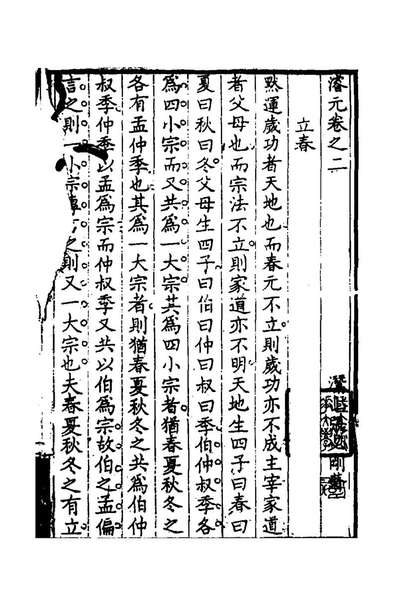 濬元卷之二
立春
默運歲功者天地也而春元不立則歲功亦不成主宰家道
者父母也而宗法不立則家道亦不明天地生四子曰春曰
夏曰秋曰冬父母生四子曰伯曰仲曰叔曰季伯仲叔季各
爲四小宗而又共爲一大宗其爲四小宗者猶春夏秋冬之
各有孟仲季也其爲一大宗者則猶春夏秋冬之共爲伯仲
叔季仲季以孟爲宗而仲叔季又共以伯爲宗故伯之孟偏
言之則一小宗專言之則又一大宗也夫春夏秋冬之有立